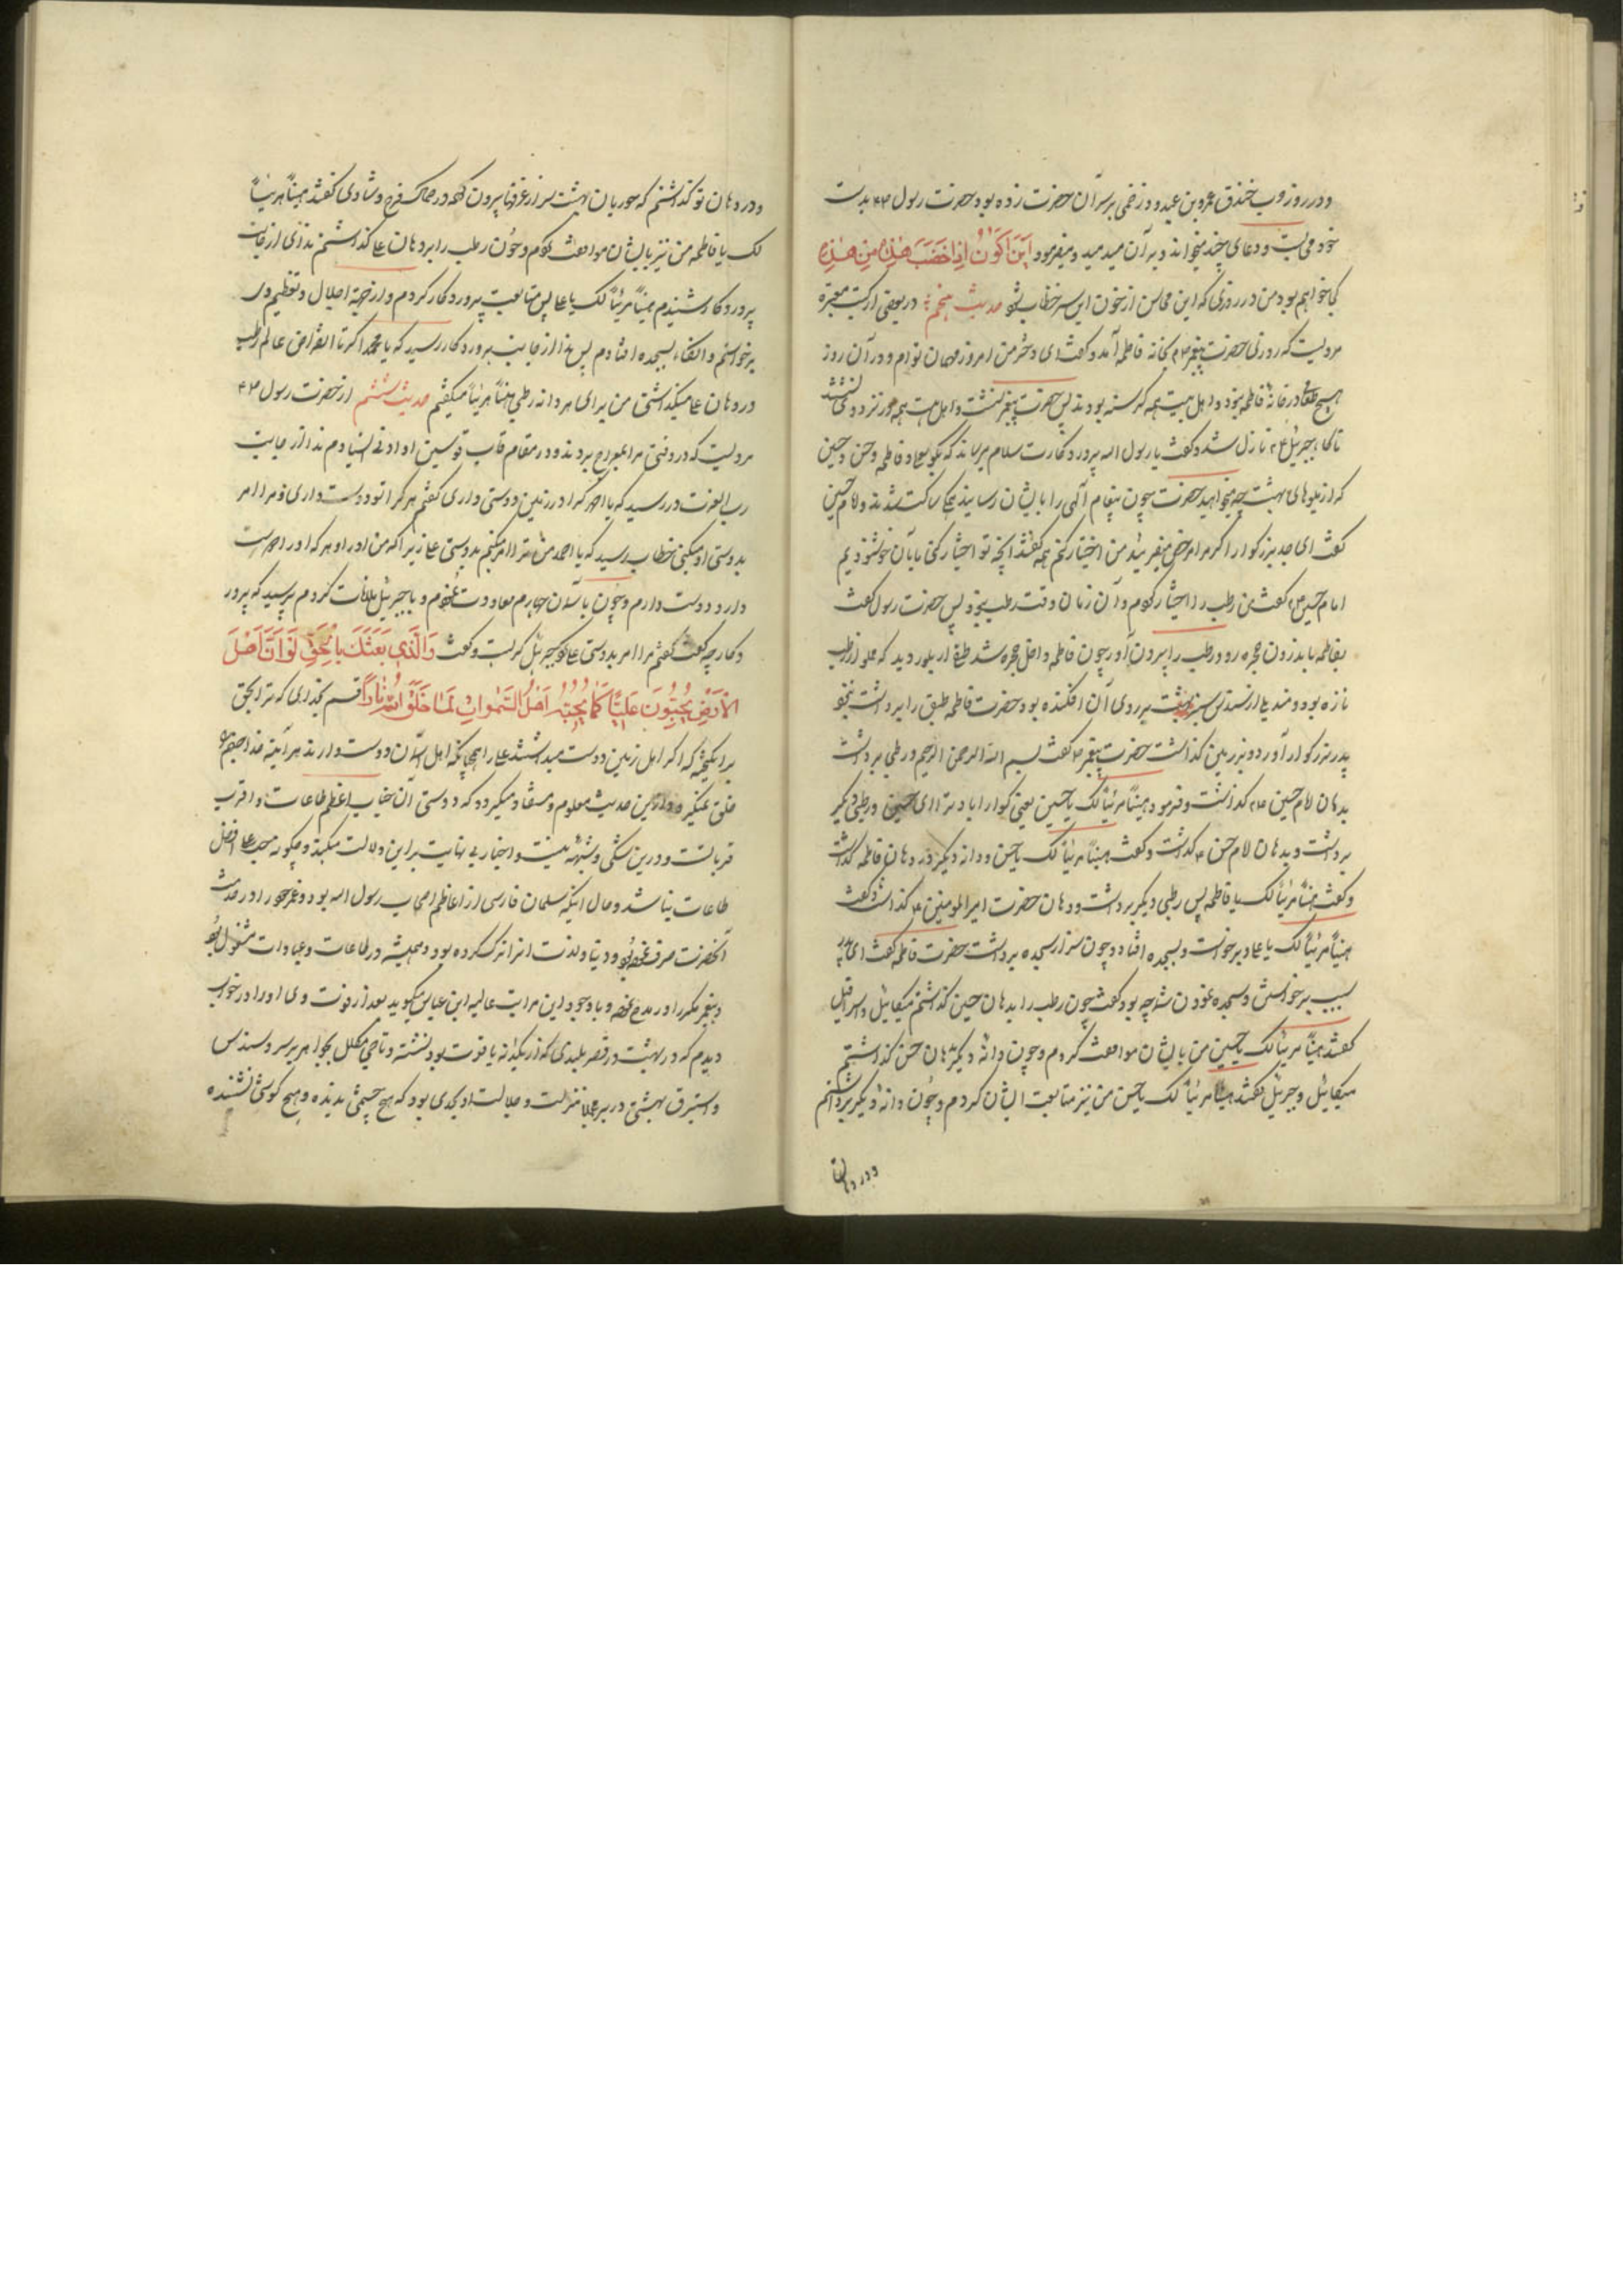 ودر روز حرب خندق عمرو بن عبدود زخمی بر سر آن حضرت زده بود حضرت رسول بدست
خود می بست ودعای چند میخواند وبر آن میدمید ومیفرمود اَینَ اَکُونُ اِذا خَضَبَ هٰذِهِ مِن هٰذِهِ
کجا خواهم بود من در روزی که این محاسن از خون این سر خضاب شود حدیث پنجم در بعضی از کتب معتبره
مرویست که روزی حضرت پیغمبر بخانه فاطمه آمد وگفت ای دختر من امروز مهمان توام ودر آن روز
هیچ طعام در خانه فاطمه نبود واهل بیت همه گرسنه بودند پس حضرت پیغمبر نشست واهل بیت همه در نزد وی نشستند
ناگاه جبرئیل نازل شد وگفت یا رسول الله پروردگارت سلام میرساند که بگو بعلی وفاطمه وحسن وحسین
که از میوهای بهشت چه میخواهید حضرت چون پیغام الهی را بایشان رسانید همه ساکت شدند وامام حسین
گفت ای جد بزرگوار اگر مرا مرخص میفرمائید من اختیار کنم همه گفتند آنچه تو اختیار کنی ما بآن خوشنودیم
امام حسین گفت من رطب را اختیار کردم وآن زمان وقت رطب نبود پس حضرت رسول گفت
بفاطمه باندرون حجره رو ورطب را بیرون آور چون فاطمه داخل حجره شد طبقی از بلور دید که مملو از رطب
تازه بود ومندیلی از سندس سبز بهشت بر روی آن افکنده بود حضرت فاطمه طبق را برداشت بنزد
پدر بزرگوار آورد وبر زمین گذاشت حضرت پیغمبر گفت بسم الله الرحمن الرحیم ورطبی برداشت
بدهان امام حسین گذاشت وفرمود هنیئاً مریئاً لک یا حسین یعنی گوارا باد ترا ای حسین ورطبی دیگر
برداشت وبدهان امام حسن گذاشت وگفت هنیئاً مریئاً لک یا حسن ودانه دیگر در دهان فاطمه گذاشت
وگفت هنیئاً مریئاً لک یا فاطمه پس رطبی دیگر برداشت ودر دهان حضرت امیرالمومنین گذاشت وگفت
هنیئاً مریئاً لک یا علی وبرخواست وبسجده افتاد وچون سر از سجده برداشت حضرت فاطمه گفت ای پدر
سبب برخواستن وسجده نمودن شما چه بود گفت چون رطب را بدهان حسین گذاشتم میکائیل واسرافیل
گفتند هنیئاً مریئاً لک یا حسین من با ایشان موافقت کردم وچون دانه دیگر بدهان حسن گذاشتم
میکائیل وجبرئیل گفتند هنیئاً مریئاً لک یا حسن من نیز متابعت ایشان کردم وچون دانه دیگر برداشتم
ودر دهان
ودر دهان تو گذاشتم که حوریان بهشت سر از غرفها بیرون کرده در کمال فرح وشادی گفتند هنیئاً مریئاً
لک یا فاطمه من نیز با ایشان موافقت کردم وچون رطب را بر دهان علی گذاشتم ندائی از جانب
پروردگار شنیدم هنیئاً مریئاً لک یا علی پس متابعت پروردگار کردم واز جهة اجلال وتعظیم وی
برخواستم وآنگاه بسجده افتادم پس ندا از جانب پروردگار رسید که یا محمد اگر تا انقراض عالم رطب
در دهان علی میگذاشتی من برای هر دانه رطبی هنیئاً مریئاً میگفتم حدیث ششم از حضرت رسول
مرویست که در وقتی مرا بمعراج بردند ودر مقام قاب قوسین او ادنی ایستادم ندا از جانب
رب العزت در رسید که یا احمد کرا در زمین دوست داری گفتم هر کرا تو دوست داری ومرا امر
بدوستی او میکنی خطاب رسید که یا احمد من ترا امر میکنم بدوستی علی زیرا که من او را وهر که او را دوست
دارد دوست دارم وچون بآسمان چهارم معاودت نمودم وبا جبرئیل ملاقات کردم پرسید که پرور
دگار چه گفت گفتم مرا امر بدوستی علی کرد جبرئیل گریست وگفت وَالَّذی بَعَثَکَ بِالْحَقِّ لَوْ اَنَّ اَهْلَ
الْاَرْضِ یُحِبُّونَ عَلِیّاً کَمٰا یُحِبُّهُ اَهْلُ السَّمٰواتِ لَمٰا خَلَقَ اللهُ نٰاراً قسم بخدایی که ترا بحق
برانگیخته که اگر اهل زمین دوست میداشتند علی را همچنانکه اهل آسمان دوست دارند هرآینه خدا جهنم را
خلق نمیکرد وازین حدیث معلوم ومستفاد میگردد که دوستی آن جناب اعظم طاعات واقرب
قرباتست ودرین شکی وشبهه نیست واخبار بی نهایت بر این دلالت میکند وچگونه حب علی افضل
طاعات نباشد وحال آنکه سلمان فارسی از اعاظم اصحاب رسول الله بود وعمر خود را در خدمت
آنحضرت صرف نموده بود ودنیا ولذت آنرا ترک کرده بود وهمیشه در طاعات وعبادات مشغول بود
وپیغمبر مکرر او را مدح نموده وبا وجود این مراتب عالیه ابن عباس میگوید بعد از فوت وی او را در خواب
دیدم که در بهشت در قصر بلندی که از یکدانه یاقوت بود نشسته وتاجی مکلل بجواهر بر سر وسندس
واستبرق بهشتی در بر منزلت وجلالت او بحدی بود که هیچ چشمی ندیده وهیچ گوشی نشنیده